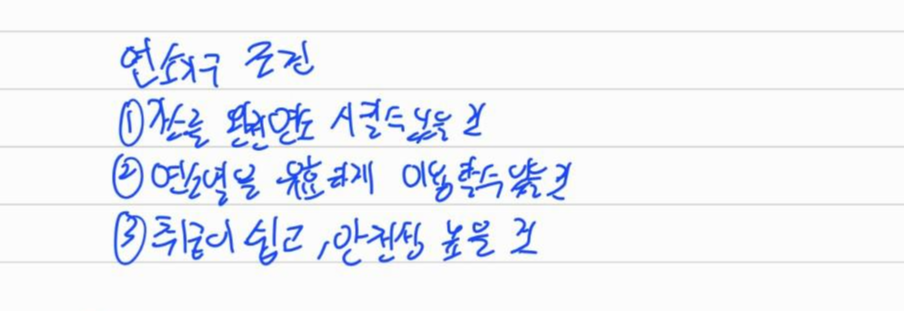 연소기구 조건
① 가스를 완전연소 시킬수 있을 것
② 연소열을 유효하게 이용할수 있을 것
③ 취급이 쉽고, 안전성 높을 것